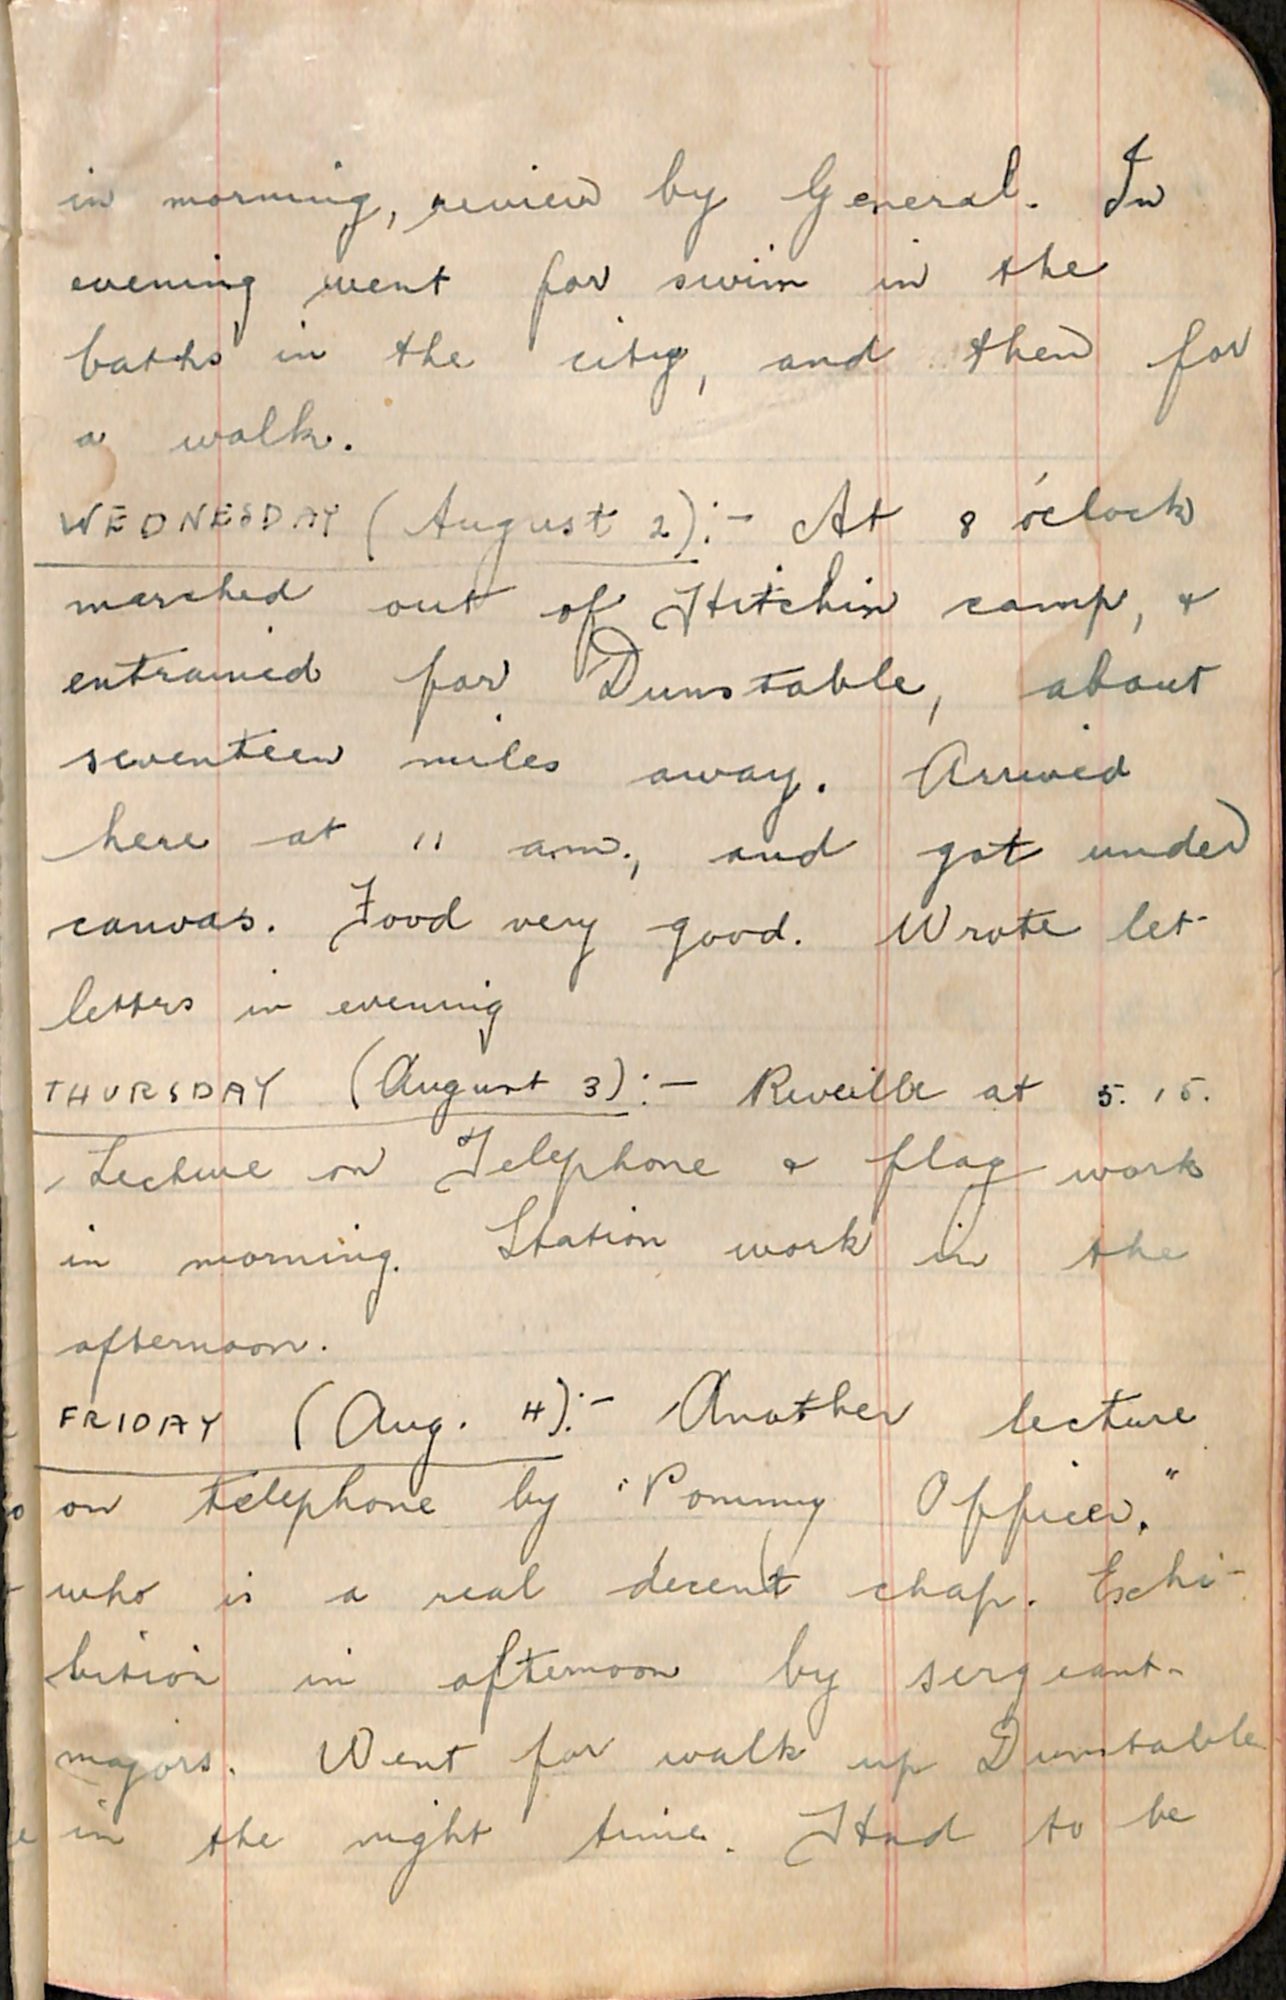 in morning, review by General. In
evening went for swim in the
baths in the city, and then for
a walk.
WEDNESDAY (August 2):- At 8 o'clock
marched out of Hitchin camp, &
entrained for Dunstable, about
seventeen miles away. Arrived
here at 11 am., and got under
canvas. Food very good. Wrote let-
letters in evening
THURSDAY (August 3):- Reveille at 5.15.
Lecture on Telephone & flag work
in morning. Station work in the
afternoon.
FRIDAY (Aug. 4):- Another lecture
on telephone by "Pommy Officer."
who is a real decent chap. Exhi-
bition in afternoon by sergeant-
majors. Went for walk up Dunstable
in the night time. Had to be